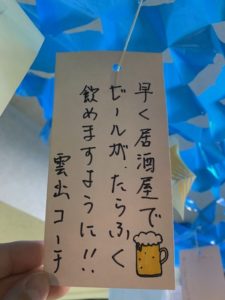 早く居酒屋で
ビールが、たらふく
飲めますように!!
雲出コーチ